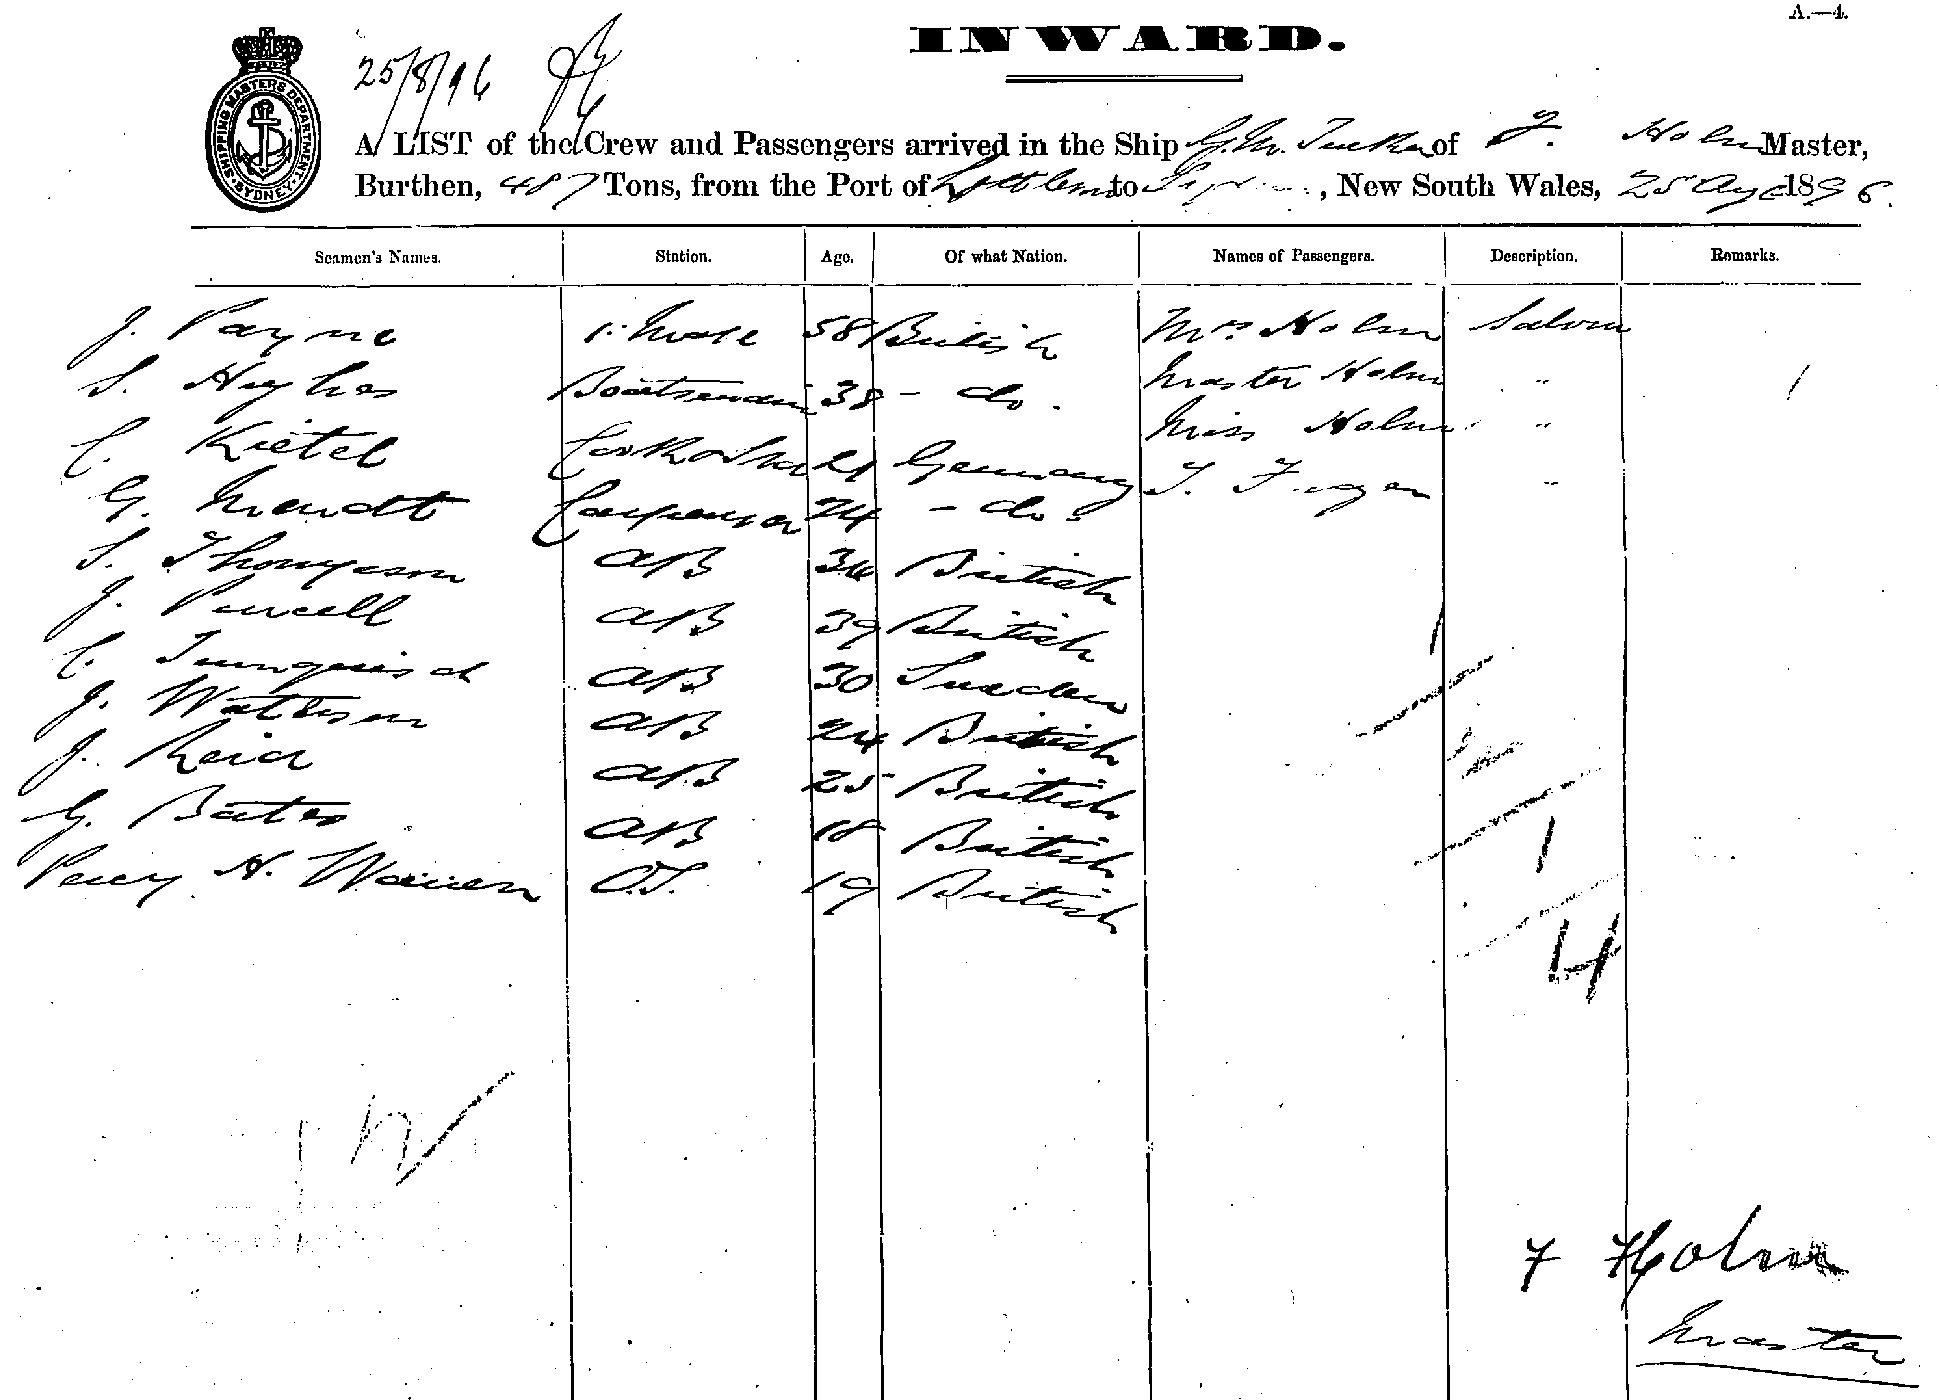 A.—4.
INWARD.
25/8/96
SHIPPING MASTERS DEPARTMENT · SYDNEY ·
A LIST of the Crew and Passengers arrived in the Ship G. M. Tucker of F. Holm Master,
Burthen, 487 Tons, from the Port of to , New South Wales, 25 Aug 1896.
Seamen's Names. Station. Age. Of what Nation. Names of Passengers. Description. Remarks.
J. Payne 1. Mate 58 British Mrs Holm Saloon
S. Hughes Boatswain 38 - do. Master Holm "
C. Kietel 21 Germany Miss Holm "
G. Carpenter 24 - do. "
S. Thompson AB British
J. Purcell AB 39 British
C. AB 30 Sweden
J. Watteson AB 24 British
J. Reid AB 25 British
G. Bates AB 18 British
Percy H. Warren O.S. 19 British
1
1
4
F Holm
Master